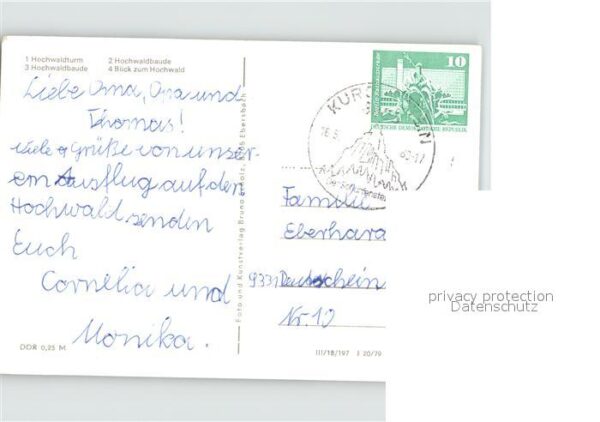 1 Hochwaldturm 2 Hochwaldbaude
3 Hochwaldbaude 4 Blick zum Hochwald
Liebe Oma, Opa und
Thomas!
viele Grüße von unser-
em Ausflug auf den
Hochwald senden
Euch
Cornelia und
Monika.
DDR 0,25 M
Foto und Kunstverlag Bruno Scholz, Ebersbach
10
DEUTSCHE DEMOKRATISCHE REPUBLIK
KUR
Familie
Eberhard
9331 Deutschein
Nr. 10
III/18/197 J 20/79
privacy protection
Datenschutz